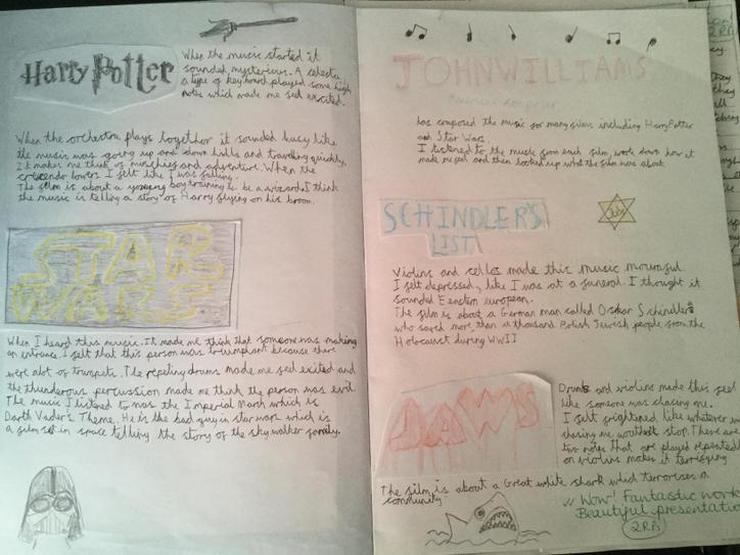 Harry Potter
When the music started it
sounded mysterious. A celesta
a type of keyboard played some high
notes which made me feel excited.
When the orchestra plays together it sounded busy like
the music was going up and down hills and traveling quickly,
It makes me think of mischief and adventure. When the
crescendo lowers I felt like I was falling.
The film is about a young boy training to be a wizard. I think
the music is telling a story of Harry flying on his broom.
STAR
WARS
When I heard this music. It made me think that someone was making
an entrance. I felt that this person was triumphant because there
were alot of trumpets. The repeting drums made me feel exited and
the thunderous percussion made me think the person was evil
The music I listened to was the Imperial March which is
Darth Vader's Theme. He is the bad guy in star wars which is
a film set in space telling the story of the skywalker family.
JOHN WILLIAMS
has composed the music for many films including Harry Potter
and Star Wars
I listened to the music from each film, wrote down how it
made me feel and then looked up what the film was about.
SCHINDLER'S
LIST
Violins and cellos made this music mournful.
I felt depressed, like I was at a funeral. I thought it
sounded Eanstern european.
The film is about a German man called Oskar Schindlers
who saved more than a thousand Polish Jewish people from the
Holocaust during WWII
JAWS
Drums and violins made this feel
like someone was chasing me.
I felt frightened like whatever
chasing me wouldn't stop. There are
two notes that are played repeated
on violins makes it terrifying
The film is about a Great white shark which terrorises a
community
Wow! Fantastic work
Beautiful presentation
2RP